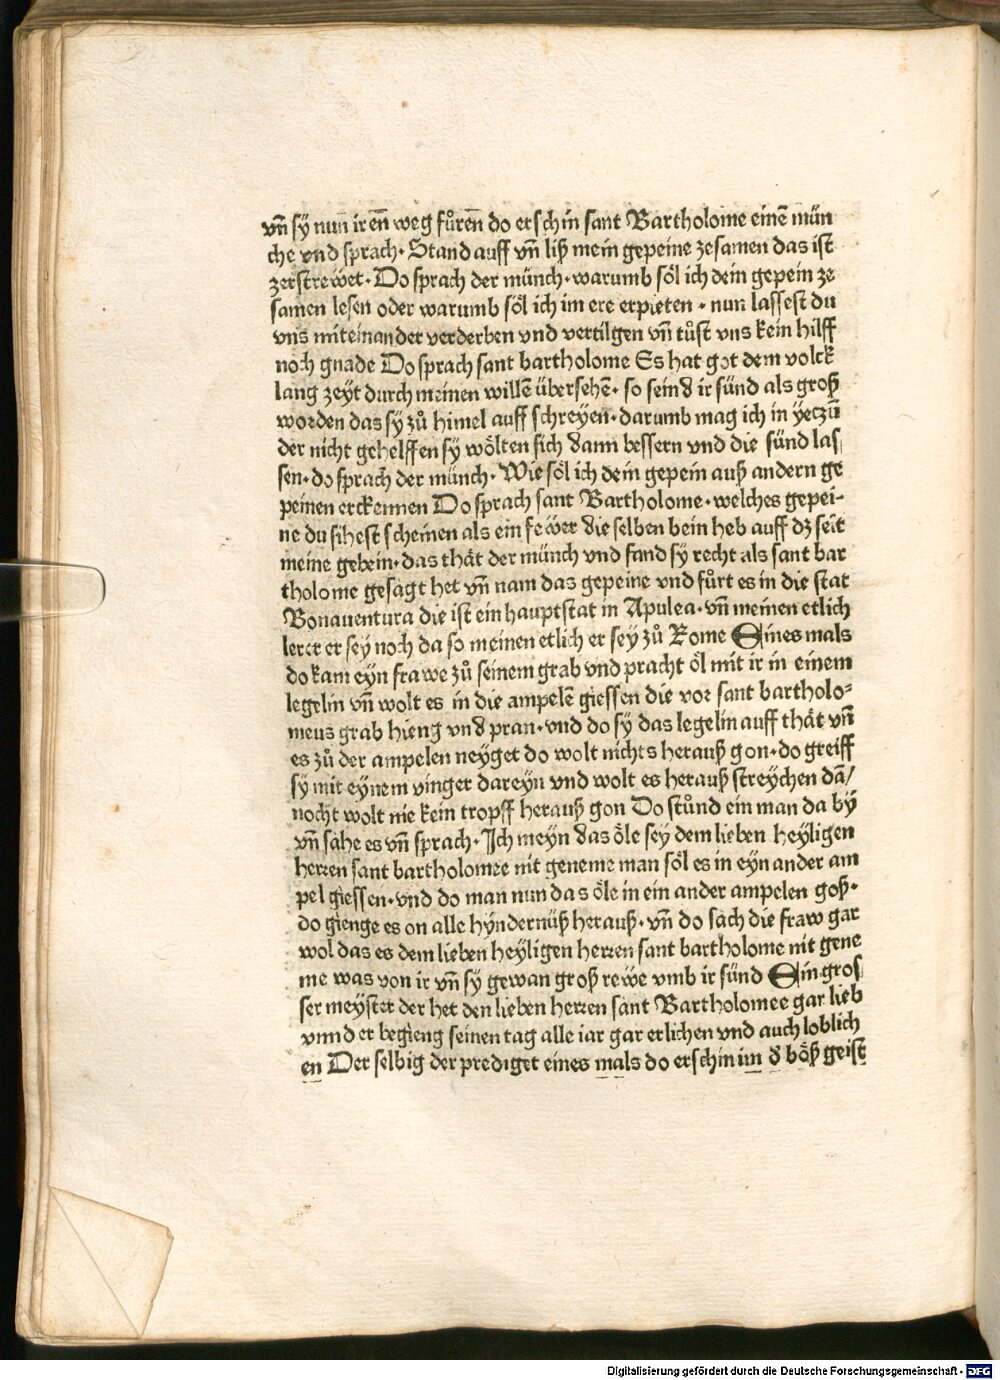 vn̄ sy nun iren̄ weg fůren̄ do erschin sant Bartholome einē mün
che vnd sprach · Stand auff vn̄ liß mein gepeine zesamen das ist
zerstrewet · Do sprach der münch · warumb söl ich dein gepein ze
samen lesen oder warumb söl ich im ere erpieten · nun lassest du
vns miteinander verderben vnd vertilgen vn̄ tůst vns kein hilff
noch gnade Do sprach sant bartholome Es hat got dem volck
lang zeyt durch meinen willē übersehē · so seind ir sünd als groß
worden das sy zů himel auff schreyen · darumb mag ich in yeczū
der nicht gehelffen sy wölten sich dann bessern vnd die sünd las
sen · do sprach der münch · Wie söl ich dein gepein auß andern ge
peinen erckennen Do sprach sant Bartholome · welches gepei-
ne du sihest scheinen als ein fewer die selben bein heb auff dz seit
meine gebein · das thät der münch vnd fand sy recht als sant bar
tholome gesagt het vn̄ nam das gepeine vnd fůrt es in die stat
Bonauentura die ist ein hauptstat in Apulea · vn̄ meinen etlich
lerer er sey noch da so meinen etlich er sey zů Rome Eines mals
do kam eyn frawe zů seinem grab vnd pracht öl mit ir in einem
legelin vn̄ wolt es in die ampelē giessen die vor sant bartholo-
meus grab hieng vnd pran · vnd do sy das legelin auff thät vn̄
es zů der ampelen neyget do wolt nichts herauß gon · do greiff
sy mit eynem vinger dareyn vnd wolt es herauß streychen dā/
nocht wolt nie kein tropff herauß gon Do stůnd ein man da by
vn̄ sahe es vn̄ sprach · Ich meyn das öle sey dem lieben heyligen
herren sant bartholomee nit geneme man söl es in eyn ander am
pel giessen · vnd do man nun das öle in ein ander ampelen goß ·
do gienge es on alle hyndernüß herauß · vn̄ do sach die fraw gar
wol das es dem lieben heyligen herren sant bartholome nit gene
me was von ir vn̄ sy gewan groß rewe vmb ir sünd Ein gros
ser meyster der het den lieben herren sant Bartholomee gar lieb
vnnd er begieng seinen tag alle iar gar erlichen vnd auch loblich
en Der selbig der prediget eines mals do erschin im d böß geist
Digitalisierung gefördert durch die Deutsche Forschungsgemeinschaft - DFG